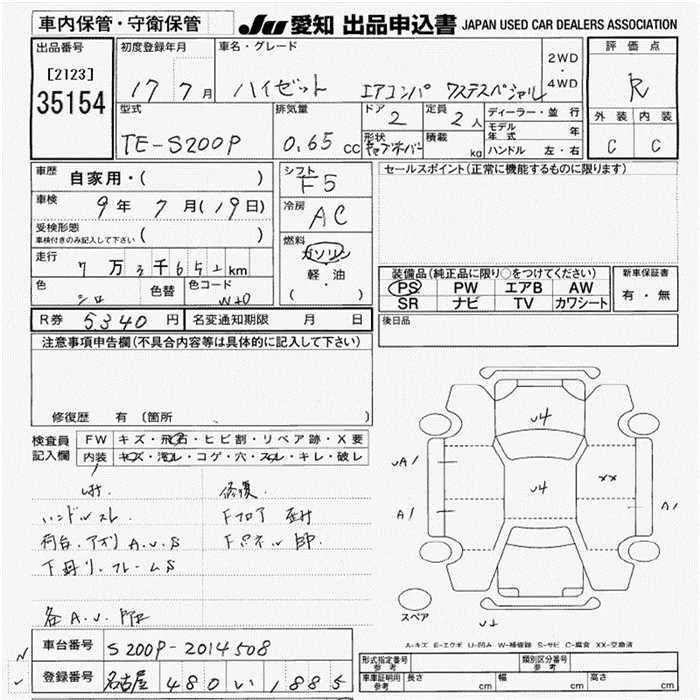 車内保管・守衛保管 JU 愛知 出品申込書 JAPAN USED CAR DEALERS ASSOCIATION
出品番号 初度登録年月 車名・グレード 2WD・4WD 評価点
[2123] 17 7月 ハイゼット エアコンパワステスペシャル R
35154 型式 排気量 ドア 定員 ディーラー・並行 外装 内装
TE-S200P 0.65cc 2 2人 モデル年式 年 C C
形状 積載 kg ハンドル 左・右
車歴 自家用・( ) シフト F5 セールスポイント(正常に機能するものに限ります)
車検 9年 7月(19日) 冷房 AC
受検形態 車検付きのみ記入して下さい ( )
燃料 ガソリン 軽・油 ( )
走行 7万3千652km
色 シロ 色替 色コード W40
装備品(純正品に限り○をつけてください) 新車保証書
PS PW エアB AW 有・無
SR ナビ TV カワシート
R券 5340円 名変通知期限 月 日 後日品
注意事項申告欄(不具合内容等は具体的に記入して下さい)
修復歴 有 (箇所 )
検査員記入欄 FW キズ・飛石・ヒビ割・リペア跡・X要
内装 キズ・汚レ・コゲ・穴・スレ・キレ・破レ
修復
ハンドルスレ Fフロア
荷台.アオリ A.U.S Fパネル
下廻リ.フレームS
各A.U.
U4
U4
UA1
A1
XX
A1
スペア
A-キズ E-エクボ U-凹み W-補修跡 S-サビ C-腐食 XX-交換済
車台番号 S200P-2014508
登録番号 名古屋 480 い 1885
形式指定番号 参考 類別区分番号 参考
車庫証明用 参考 長さ cm 幅 cm 高さ cm